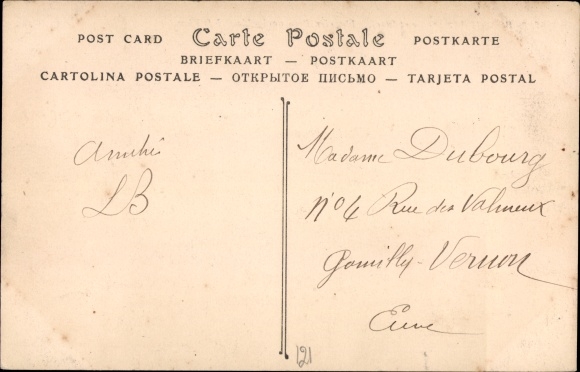 POST CARD Carte Postale POSTKARTE
BRIEFKAART — POSTKAART
CARTOLINA POSTALE — ОТКРЫТОЕ ПИСЬМО — TARJETA POSTAL
Amitié
LB
Madame Dubourg
N° 4 Rue des Valmeux
Vernon
Eure
121